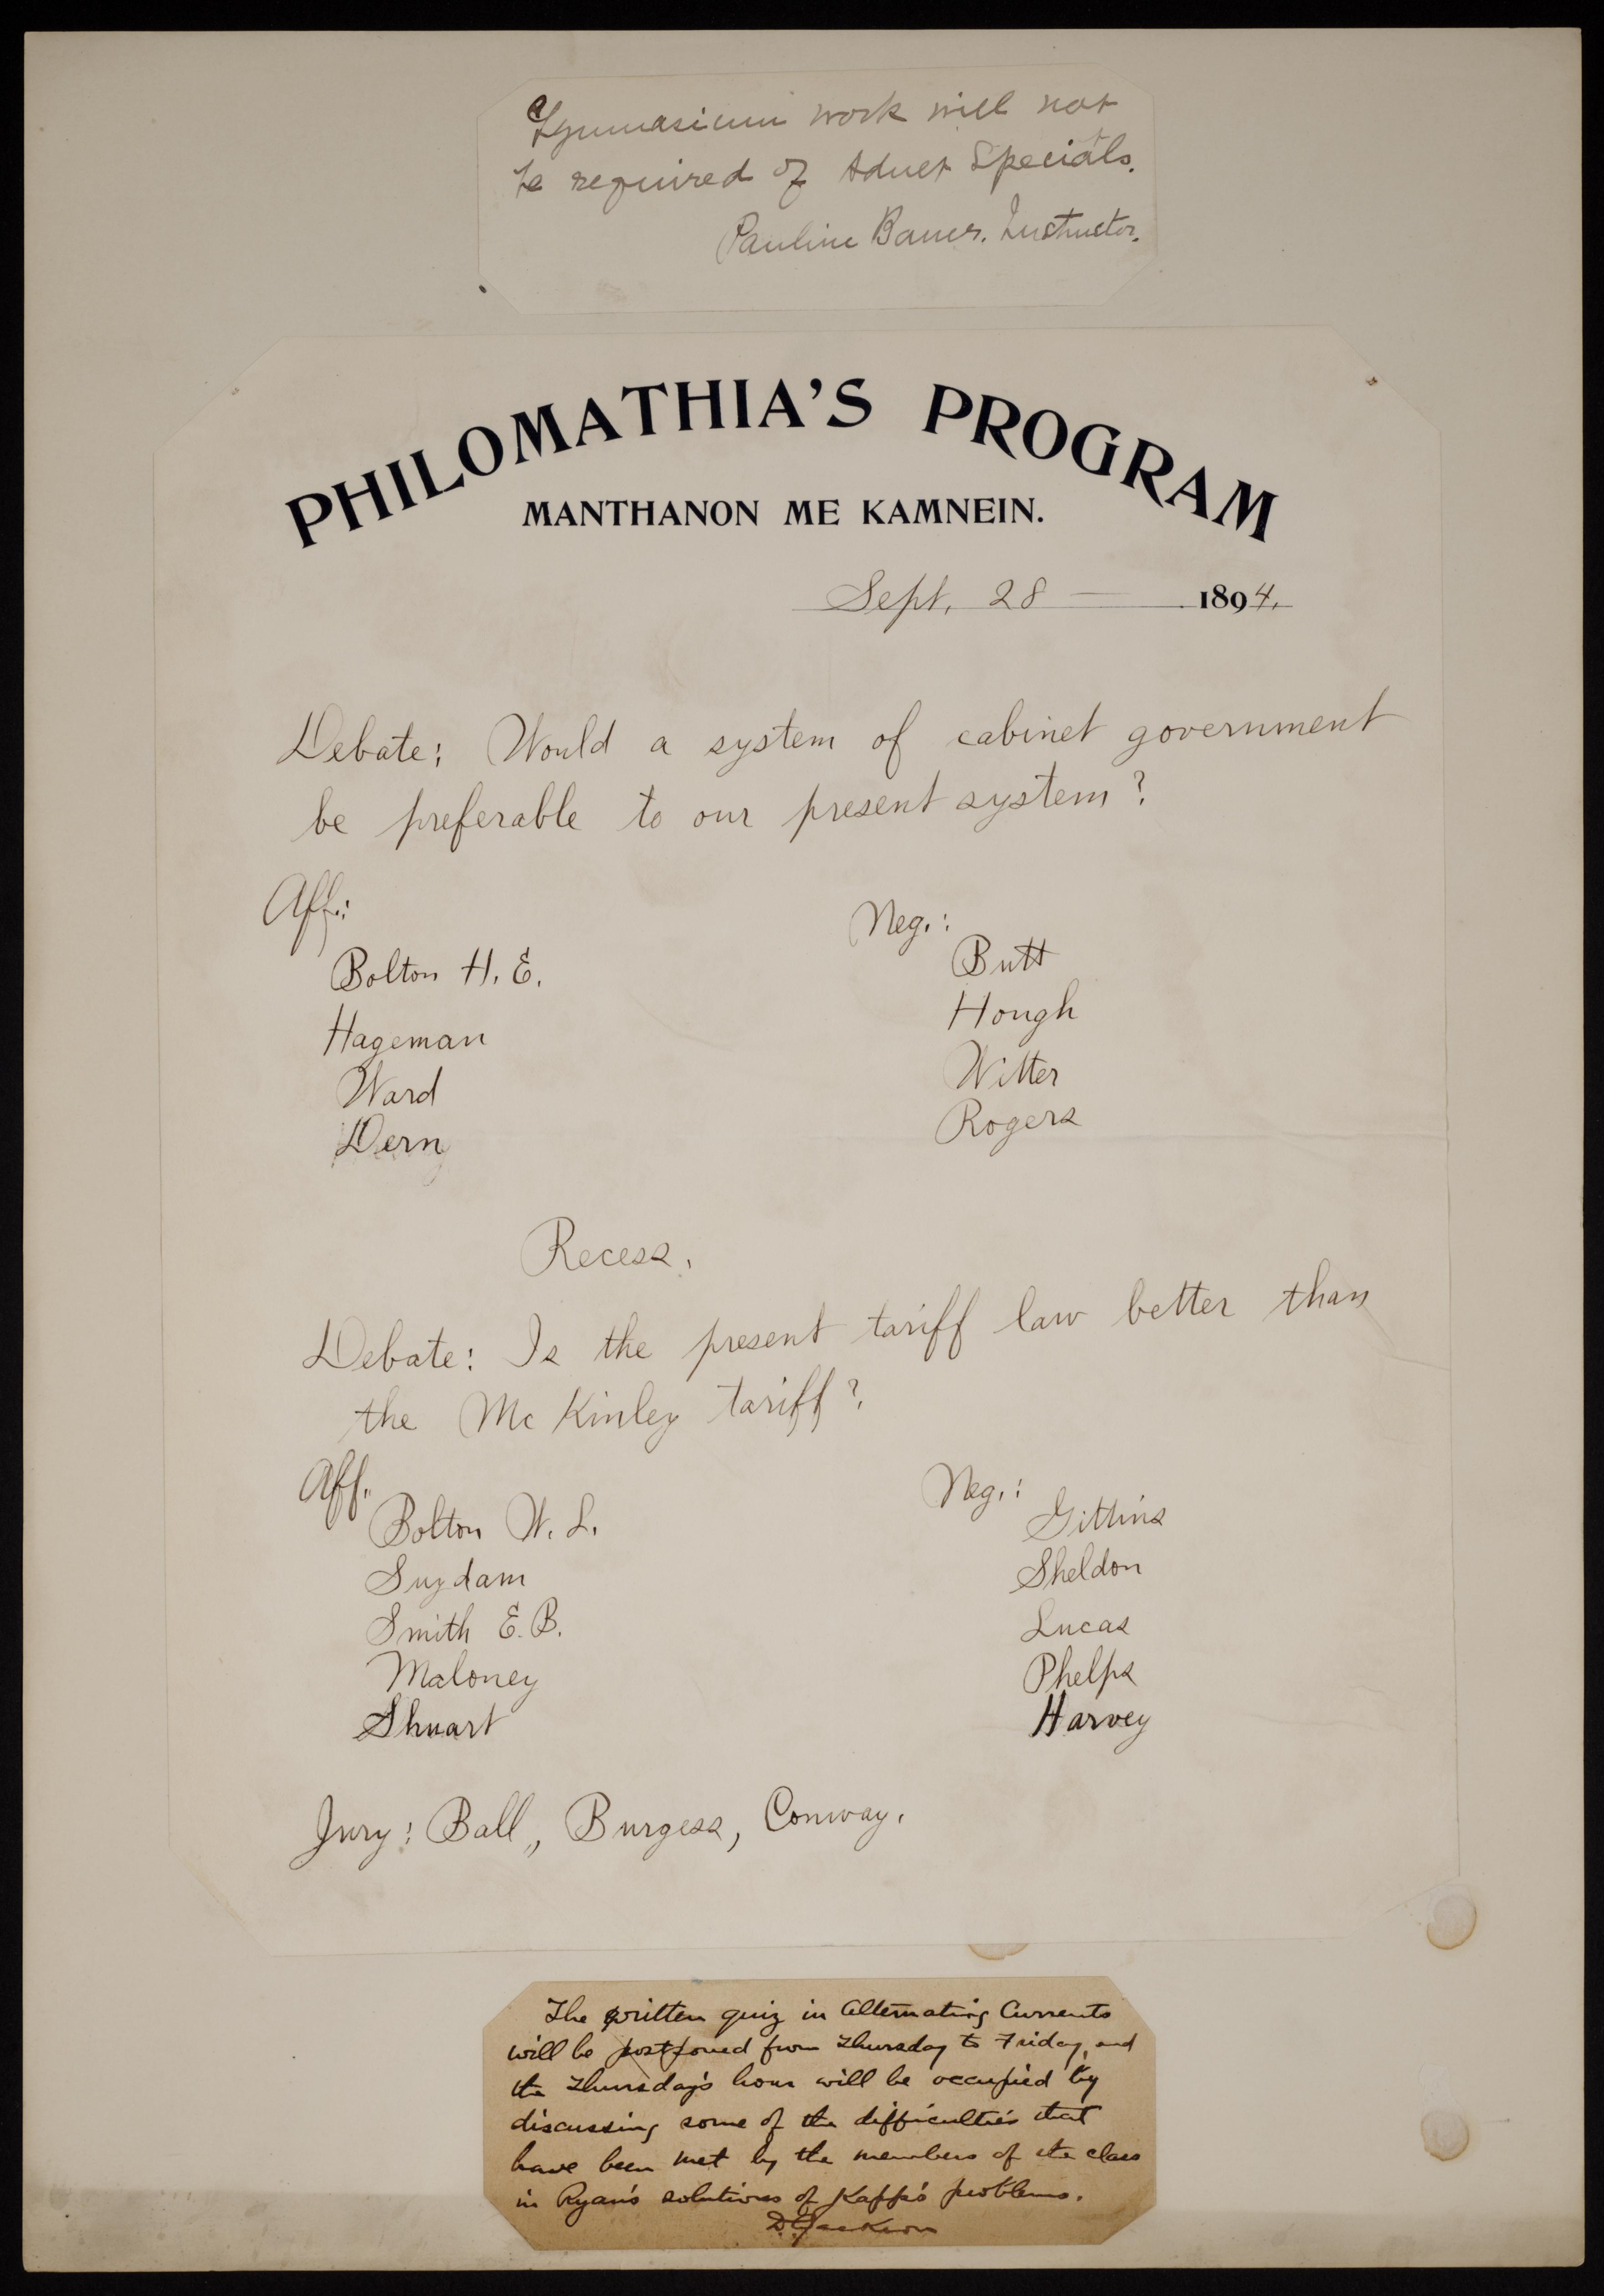 Gymnasium work will not
be required of Adult Specials.
Pauline Instructor.
PHILOMATHIA'S PROGRAM
MANTHANON ME KAMNEIN.
Sept. 28 — 1894.
Debate: Would a system of cabinet government
be preferable to our present system?
Aff.:
Neg.:
Bolton H. E.
Butt
Hageman
Hough
Ward
Witter
Dern
Rogers
Recess.
Debate: Is the present tariff law better than
the McKinley tariff?
Aff.
Neg.:
Bolton W. L.
Gittins
Suydam
Sheldon
Smith E. B.
Lucas
Maloney
Phelps
Shuart
Harvey
Jury: Ball, Burgess, Conway.
The written quiz in Alternating Currents
will be postponed from Thursday to Friday, and
the Thursday's hour will be occupied by
discussing some of the difficulties that
have been met by the members of the class
in Ryan's solutions of Kapp's problems.
D.C. Jackson